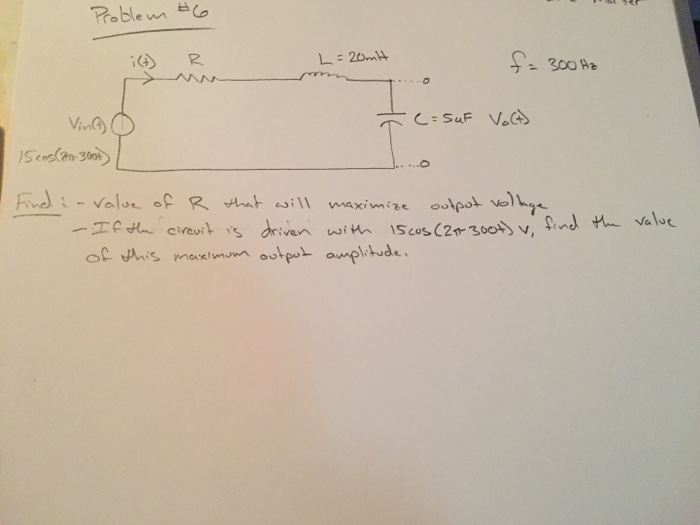 Problem #6
i(t) R L = 20mH f = 300 Hz
Vin(t) C = 5uF Vo(t)
15cos(2π·300t)
Find: - value of R that will maximize output voltage
- If the circuit is driven with 15cos(2π300t) V, find the value
of this maximum output amplitude.